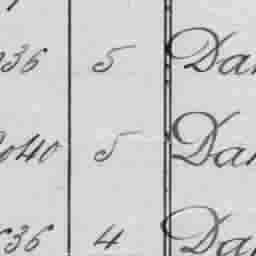 36 5 Dan
040 5 Dan
36 4 Dan